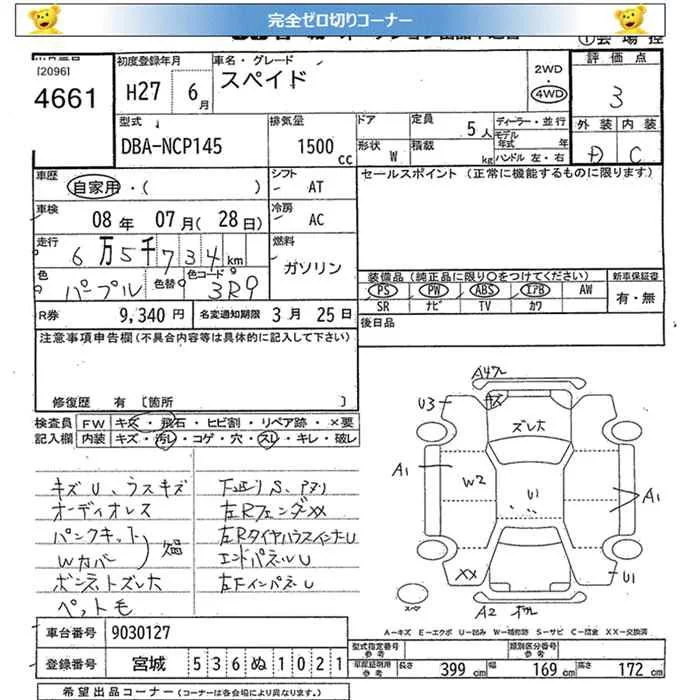 完全ゼロ切りコーナー
[2096]
4661
初度登録年月
H27
6月
車名・グレード
スペイド
2WD
4WD
評価点
3
外装 内装
D C
型式
DBA-NCP145
排気量
1500cc
ドア
定員
5人
形状
W
積載
kg
ディーラー・並行
モデル年式 年
ハンドル 左・右
車歴
自家用・( )
シフト
AT
車検
08年 07月(28日)
冷房
AC
走行
6万5千734km
燃料
ガソリン
色
パープル
色替
色コード
3R9
R券
9,340円
名変通知期限
3月 25日
セールスポイント(正常に機能するものに限ります)
装備品(純正品に限り○をつけてください)
新車保証書
PS PW ABS エアB AW
SR ナビ TV カワ
有・無
後日品
注意事項申告欄(不具合内容等は具体的に記入して下さい)
修復歴 有 [箇所 ]
検査員記入欄
FW キズ・飛石・ヒビ割・リペア跡・×要
内装 キズ・汚レ・コゲ・穴・スレ・キレ・破レ
キズU、ウスキズ
オーディオレス
パンクキット
Wカバー
欠品
ボンネットズレ大
ペット毛
下廻りS、
左Rフェンダ XX
左RタイヤハウスインナーU
エンドパネルU
左FインパネU
A4
キズ
U3
ズレ大
A1
W2
U1
A1
XX
U1
A2
スペア
A-キズ E-エクボ U-凹み W-補修跡 S-サビ C-腐食 XX-交換済
車台番号
9030127
登録番号
宮城 536 ぬ 1021
型式指定番号 参考
類別区分番号 参考
車庫証明用 参考
長さ 399cm
幅 169cm
高さ 172cm
希望出品コーナー(コーナーは各会場により異なります。)